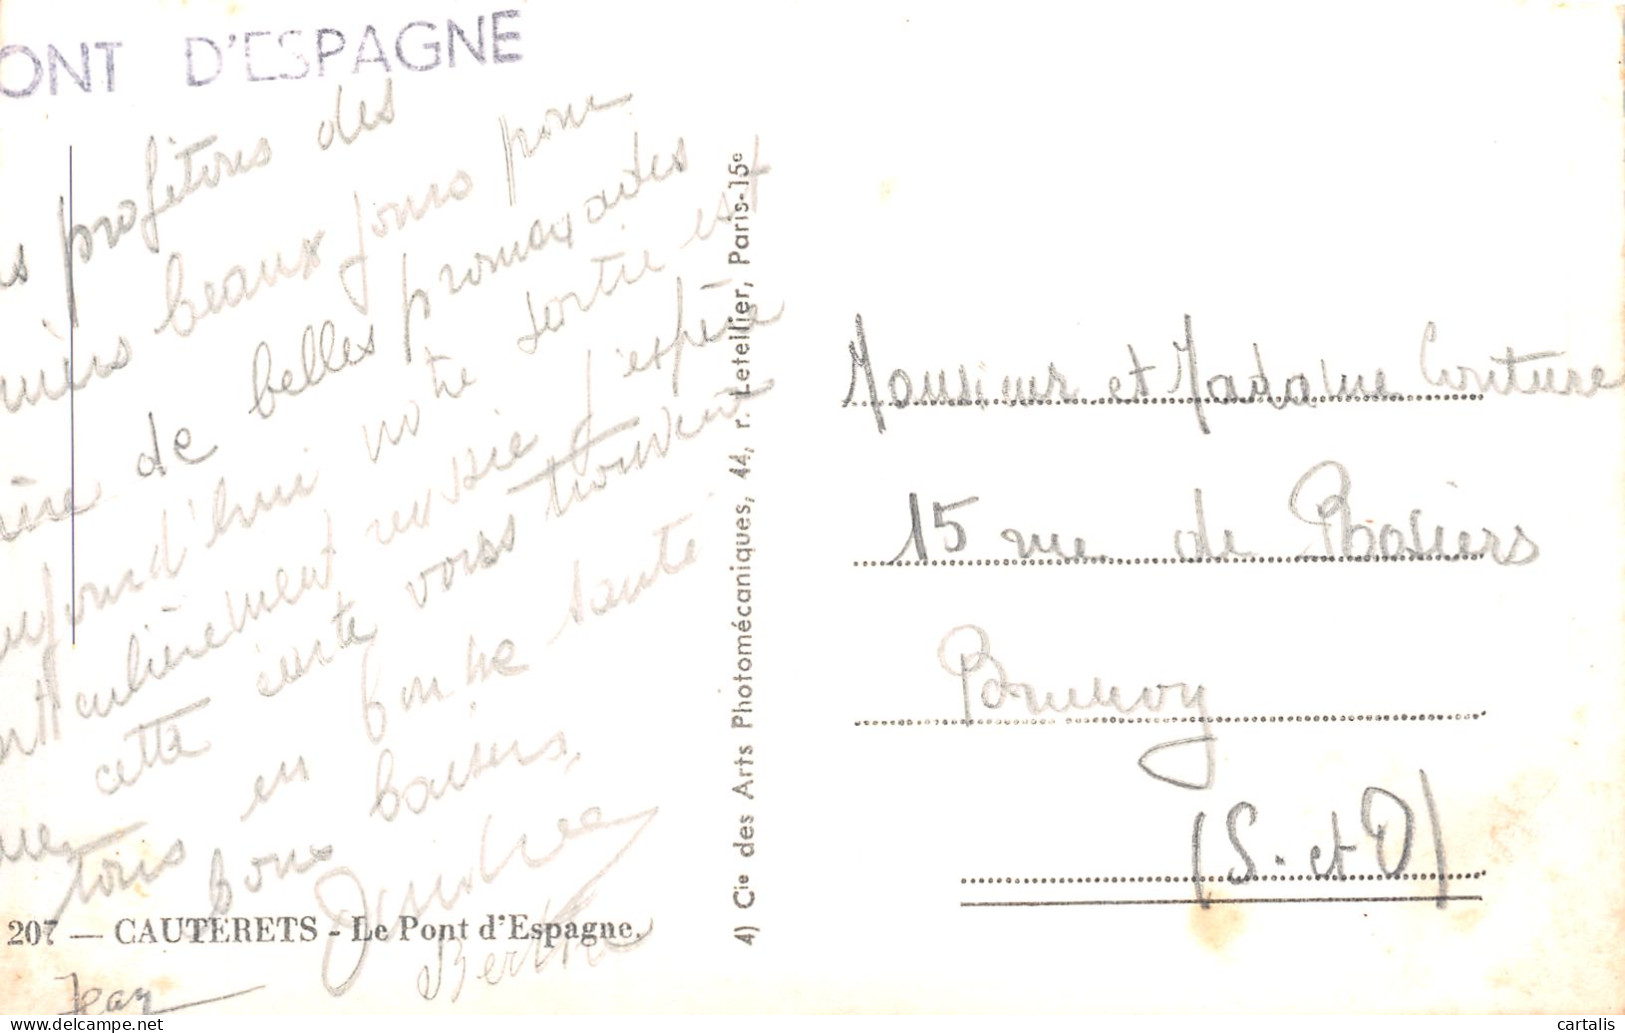 ONT D'ESPAGNE
us profitons des
niers beaux jours pour
ière de belles promenades
ujourd'hui notre sortie est
articulièrement réussie j'espère
cette carte vous trouvent
tous en bonne santé
bons baisers
Berthe
Jean
207 — CAUTERETS - Le Pont d'Espagne.
4) Cie des Arts Photomécaniques, 44, r. Letellier, Paris-15e
Monsieur et Madame Couture
15 rue de Rosiers
Brunoy
(S. et O)
cartalis